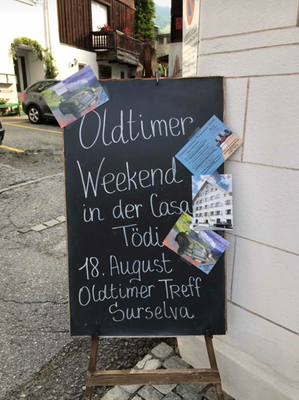 Oldtimer
Weekend
in der Casa
Tödi
18. August
Oldtimer Treff
Surselva